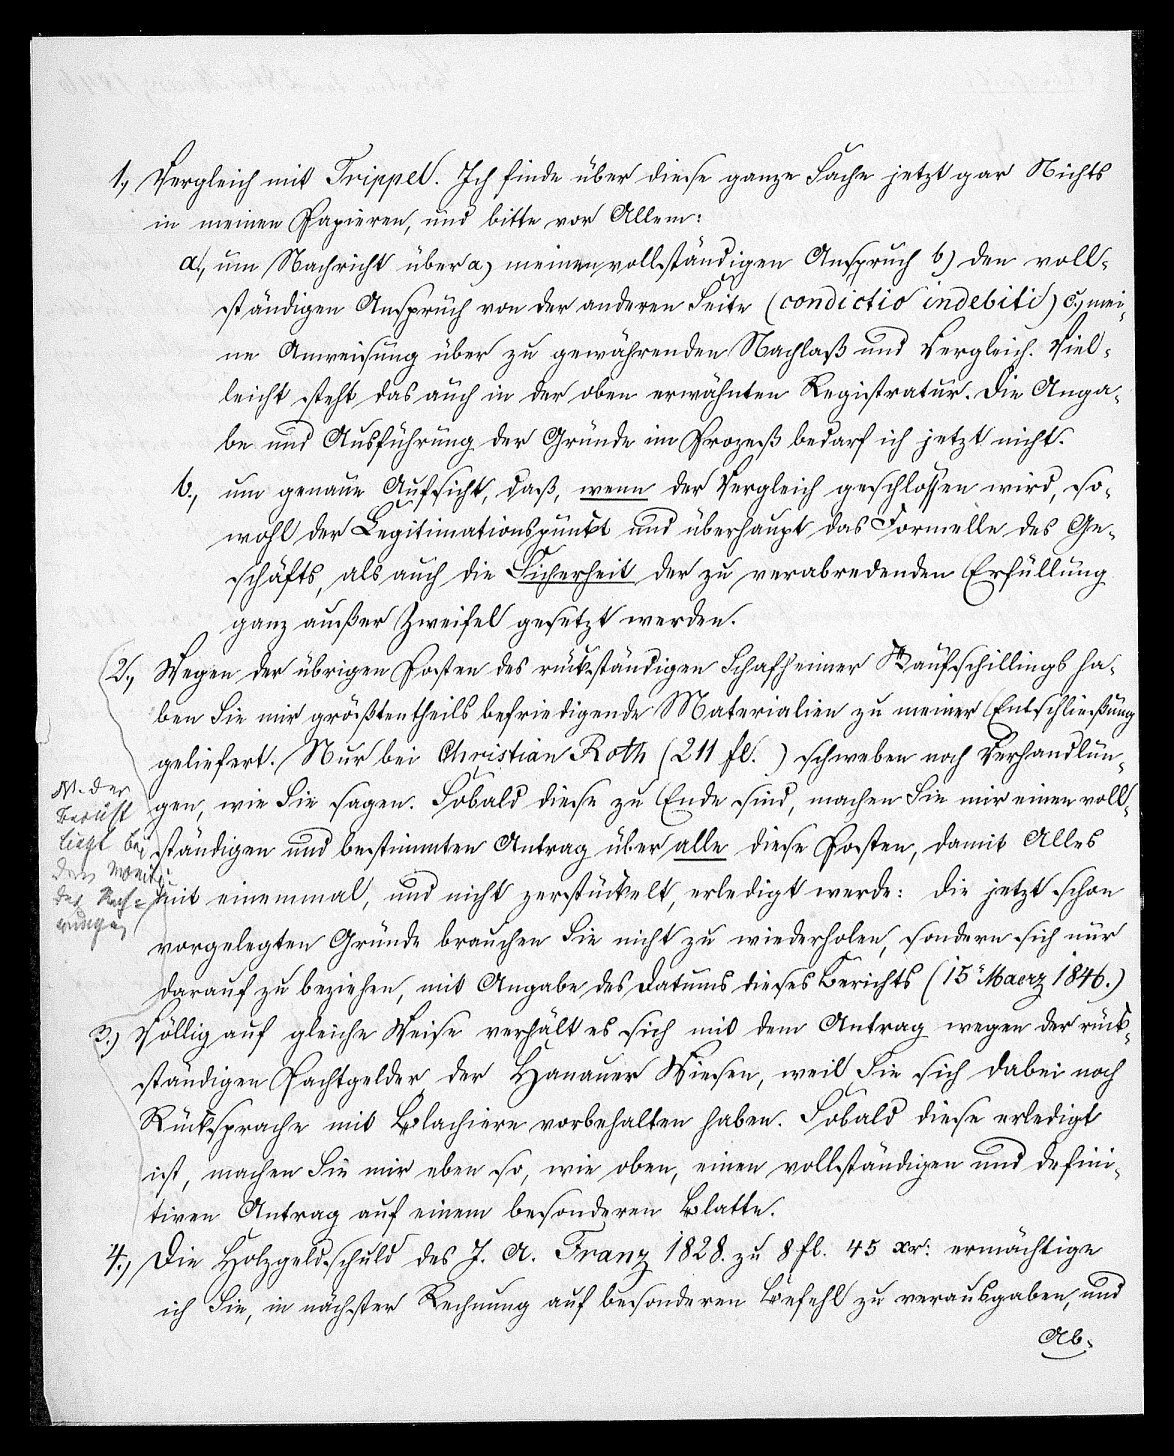 1., Vergleich mit Trippel. Ich finde über diese ganze Sache jetzt gar Nichts
in meinen Papieren, und bitte vor Allem:
a., um Nachricht über a) meinen vollständigen Anspruch b) den voll-
ständigen Anspruch von der anderen Seite (condictio indebiti) c., mei-
ne Anweisung über zu gewährenden Nachlaß und Vergleich. Viel-
leicht steht das auch in der oben erwähnten Registratur. Die Anga-
be und Ausführung der Gründe im Prozeß bedarf ich jetzt nicht.
b., um genaue Aufsicht, daß, wenn der Vergleich geschlossen wird, so-
wohl der Legitimationspunkt und überhaupt das Formelle des Ge-
schäfts, als auch die Sicherheit der zu verabredenden Erfüllung
ganz außer Zweifel gesetzt werden.
2., Wegen der übrigen Posten des rückständigen Schafheimer Kaufschillings ha-
ben Sie mir größtentheils befriedigende Materialien zu meiner Entschließung
geliefert. Nur bei Christian Roth (211 fl. ) schweben noch Verhandlun-
gen, wie Sie sagen. Sobald diese zu Ende sind, machen Sie mir einen voll-
ständigen und bestimmten Antrag über alle diese Posten, damit Alles
mit einemmal, und nicht zerstückelt, erledigt werde: die jetzt schon
vorgelegten Gründe brauchen Sie nicht zu wiederholen, sondern sich nur
darauf zu beziehen, mit Angabe des Datums dieses Berichts (15 Maerz 1846.)
3.) Völlig auf gleiche Weise verhält es sich mit dem Antrag wegen der rück-
ständigen Pachtgelder der Hanauer Wiesen, weil Sie sich dabei noch
Rücksprache mit Blachiere vorbehalten haben. Sobald diese erledigt
ist, machen Sie mir eben so, wie oben, einen vollständigen und defini-
tiven Antrag auf einem besonderen Blatte.
4., Die Holzgeldschuld des J. A. Franz 1828. zu 8 fl. 45 xr: ermächtige
ich Sie, in nächster Rechnung auf besonderen Befehl zu verausgaben, und
Ab-
N. der
Bericht
liegt bei
den
der